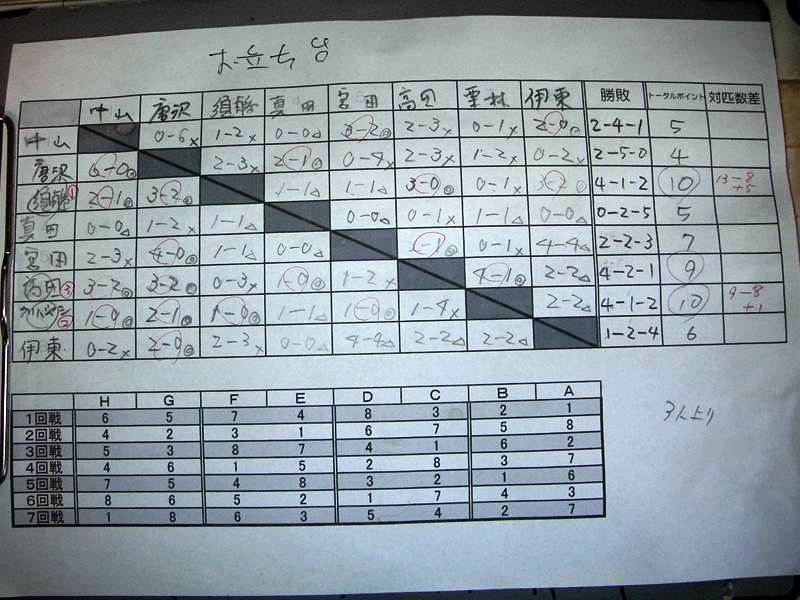 お立ち台
中山 唐沢 須藤 真田 宮田 高田 栗林 伊東 勝敗 トータルポイント 対匹数差
中山 0-6× 1-2× 0-0△ 3-2◎ 2-3× 0-1× 2-0◎ 2-4-1 5
唐沢 6-0◎ 2-3× 2-1◎ 0-4× 2-3× 1-2× 0-2× 2-5-0 4
須藤① 2-1◎ 3-2◎ 1-1△ 1-1△ 3-0◎ 0-1× 3-2◎ 4-1-2 10 13-8 +5
真田 0-0△ 1-2× 1-1△ 0-0△ 0-1× 1-1△ 0-0△ 0-2-5 5
宮田 2-3× 4-0◎ 1-1△ 0-0△ 0-1× 4-4△ 2-2-3 7
高田③ 3-2◎ 3-2◎ 0-3× 1-0◎ 1-2× 4-1◎ 2-2△ 4-2-1 9
② 1-0◎ 2-1◎ 1-0◎ 1-1△ 1-0◎ 1-4× 2-2△ 4-1-2 10 9-8 +1
伊東 0-2× 2-0◎ 2-3× 0-0△ 4-4△ 2-2△ 2-2△ 1-2-4 6
H G F E D C B A
1回戦 6 5 7 4 8 3 2 1
2回戦 4 2 3 1 6 7 5 8
3回戦 5 3 8 7 4 1 6 2
4回戦 4 6 1 5 2 8 3 7
5回戦 7 5 4 8 3 2 1 6
6回戦 8 6 5 2 1 7 4 3
7回戦 1 8 6 3 5 4 2 7
3人上り